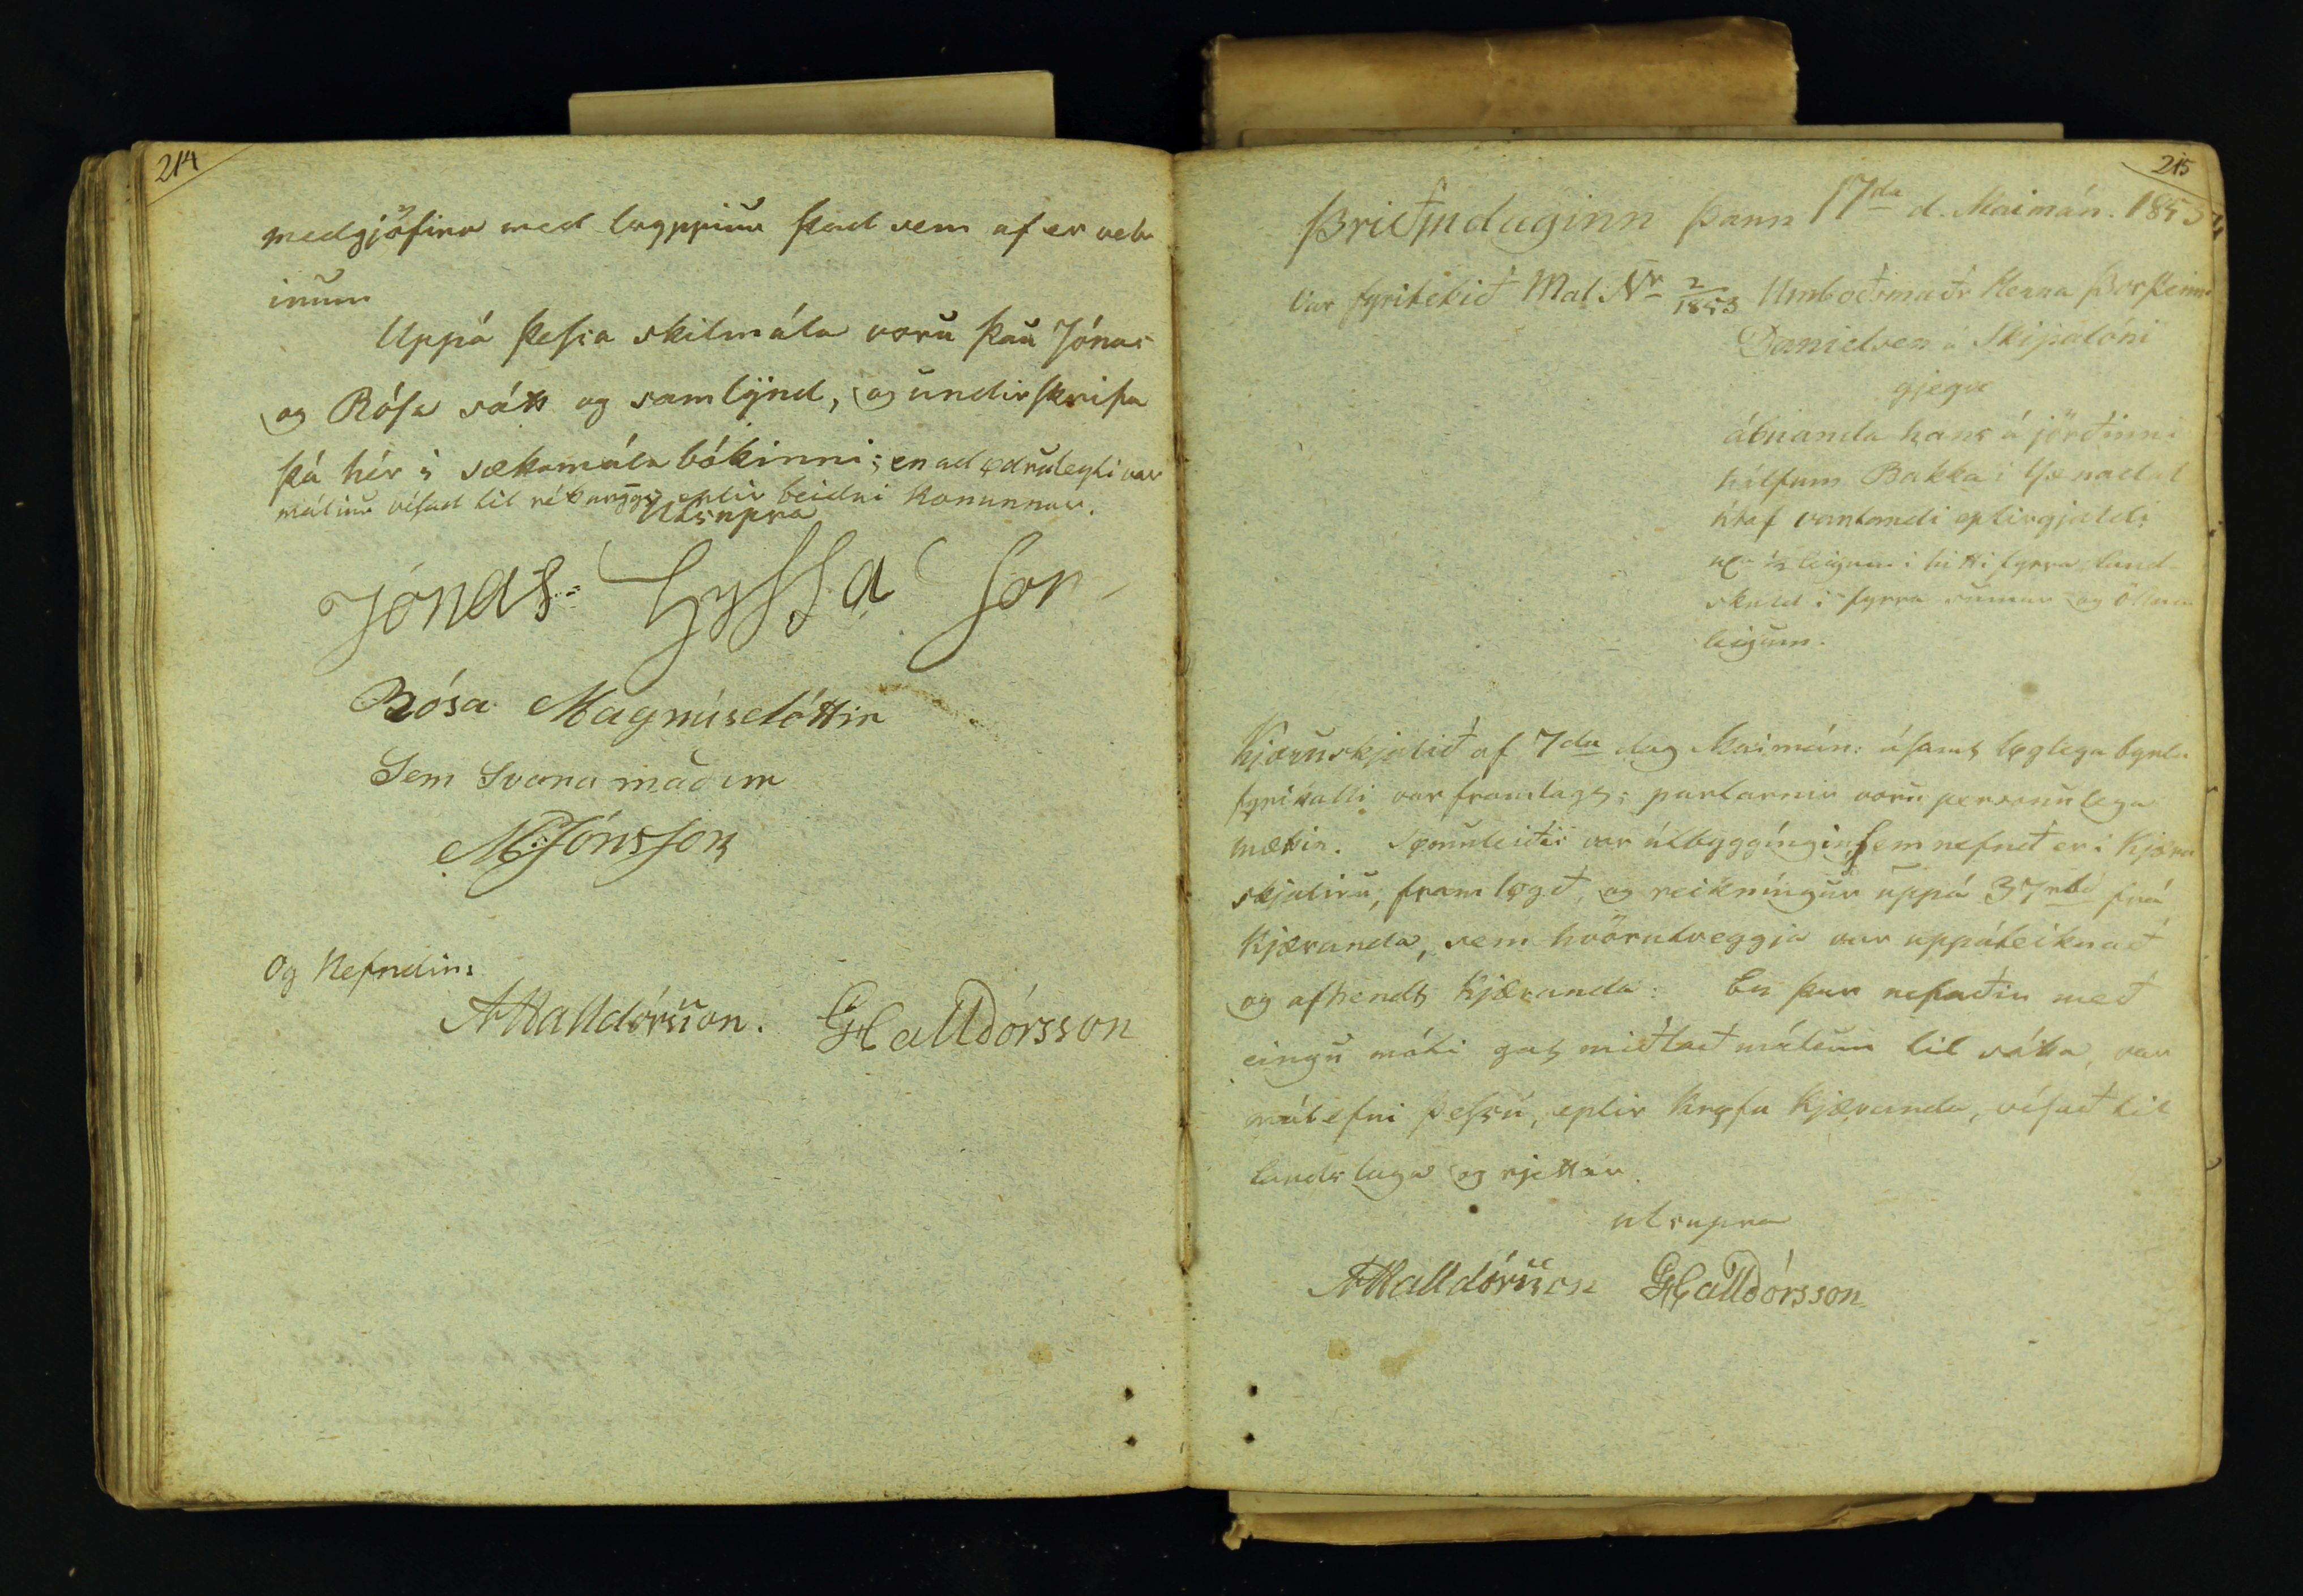 214
medgjöfina med lagppium það sem af er vetr
inum
Uppá þessa skilmála voru þau Jónas
og Rósa sátt og samlÿnd, og undirskrifa
þá hér í sættamála bókinni; en ad ødruleyti var
málinu vísad til réttargangs eptir beidni konunnar.
Utsupra
Jónas Gÿssa son
Rósa Magnúsdóttir
Sem Svaramadur
M. Jónsson
Og Nefndin:
AHalldórsson. GHalldórsson
215
Þriðjudaginn þann 17da d. Maimán. 1853
Var fyritekið Mal Nr 2/1853 Umboðsmaðr Herra Þorsteinn
Danielsen á Skipalóni
gjegn
ábúanda hans á jörðinni
hálfum Bakka í Yxnadal
útaf vantandi eptirgjaldi
½ leigum í hitti fyrra, land-
skuld í fyrra sumar og öllum
leigum.
Kjæruskjalið af 7da dag Maimán: ásamt løglega byrtu
fyrikalli var framlagt; partarnir voru personulega
mættir. Sømuleiðis var útbyggíngin, sem nefnd er í Kjæru
skjalinu, framløgð, og reikníngur uppá 37rbd frá
Kjæranda, sem hvörutveggja var uppáteiknað
og afhendt Kjæranda. En þar nefndin með
eingu móti gat miðlað málum til sátta, var
málefni þessu, eptir krøfu Kjæranda, vísað til
landslaga og rjettar.
utsupra
AHalldórsson GHalldórsson